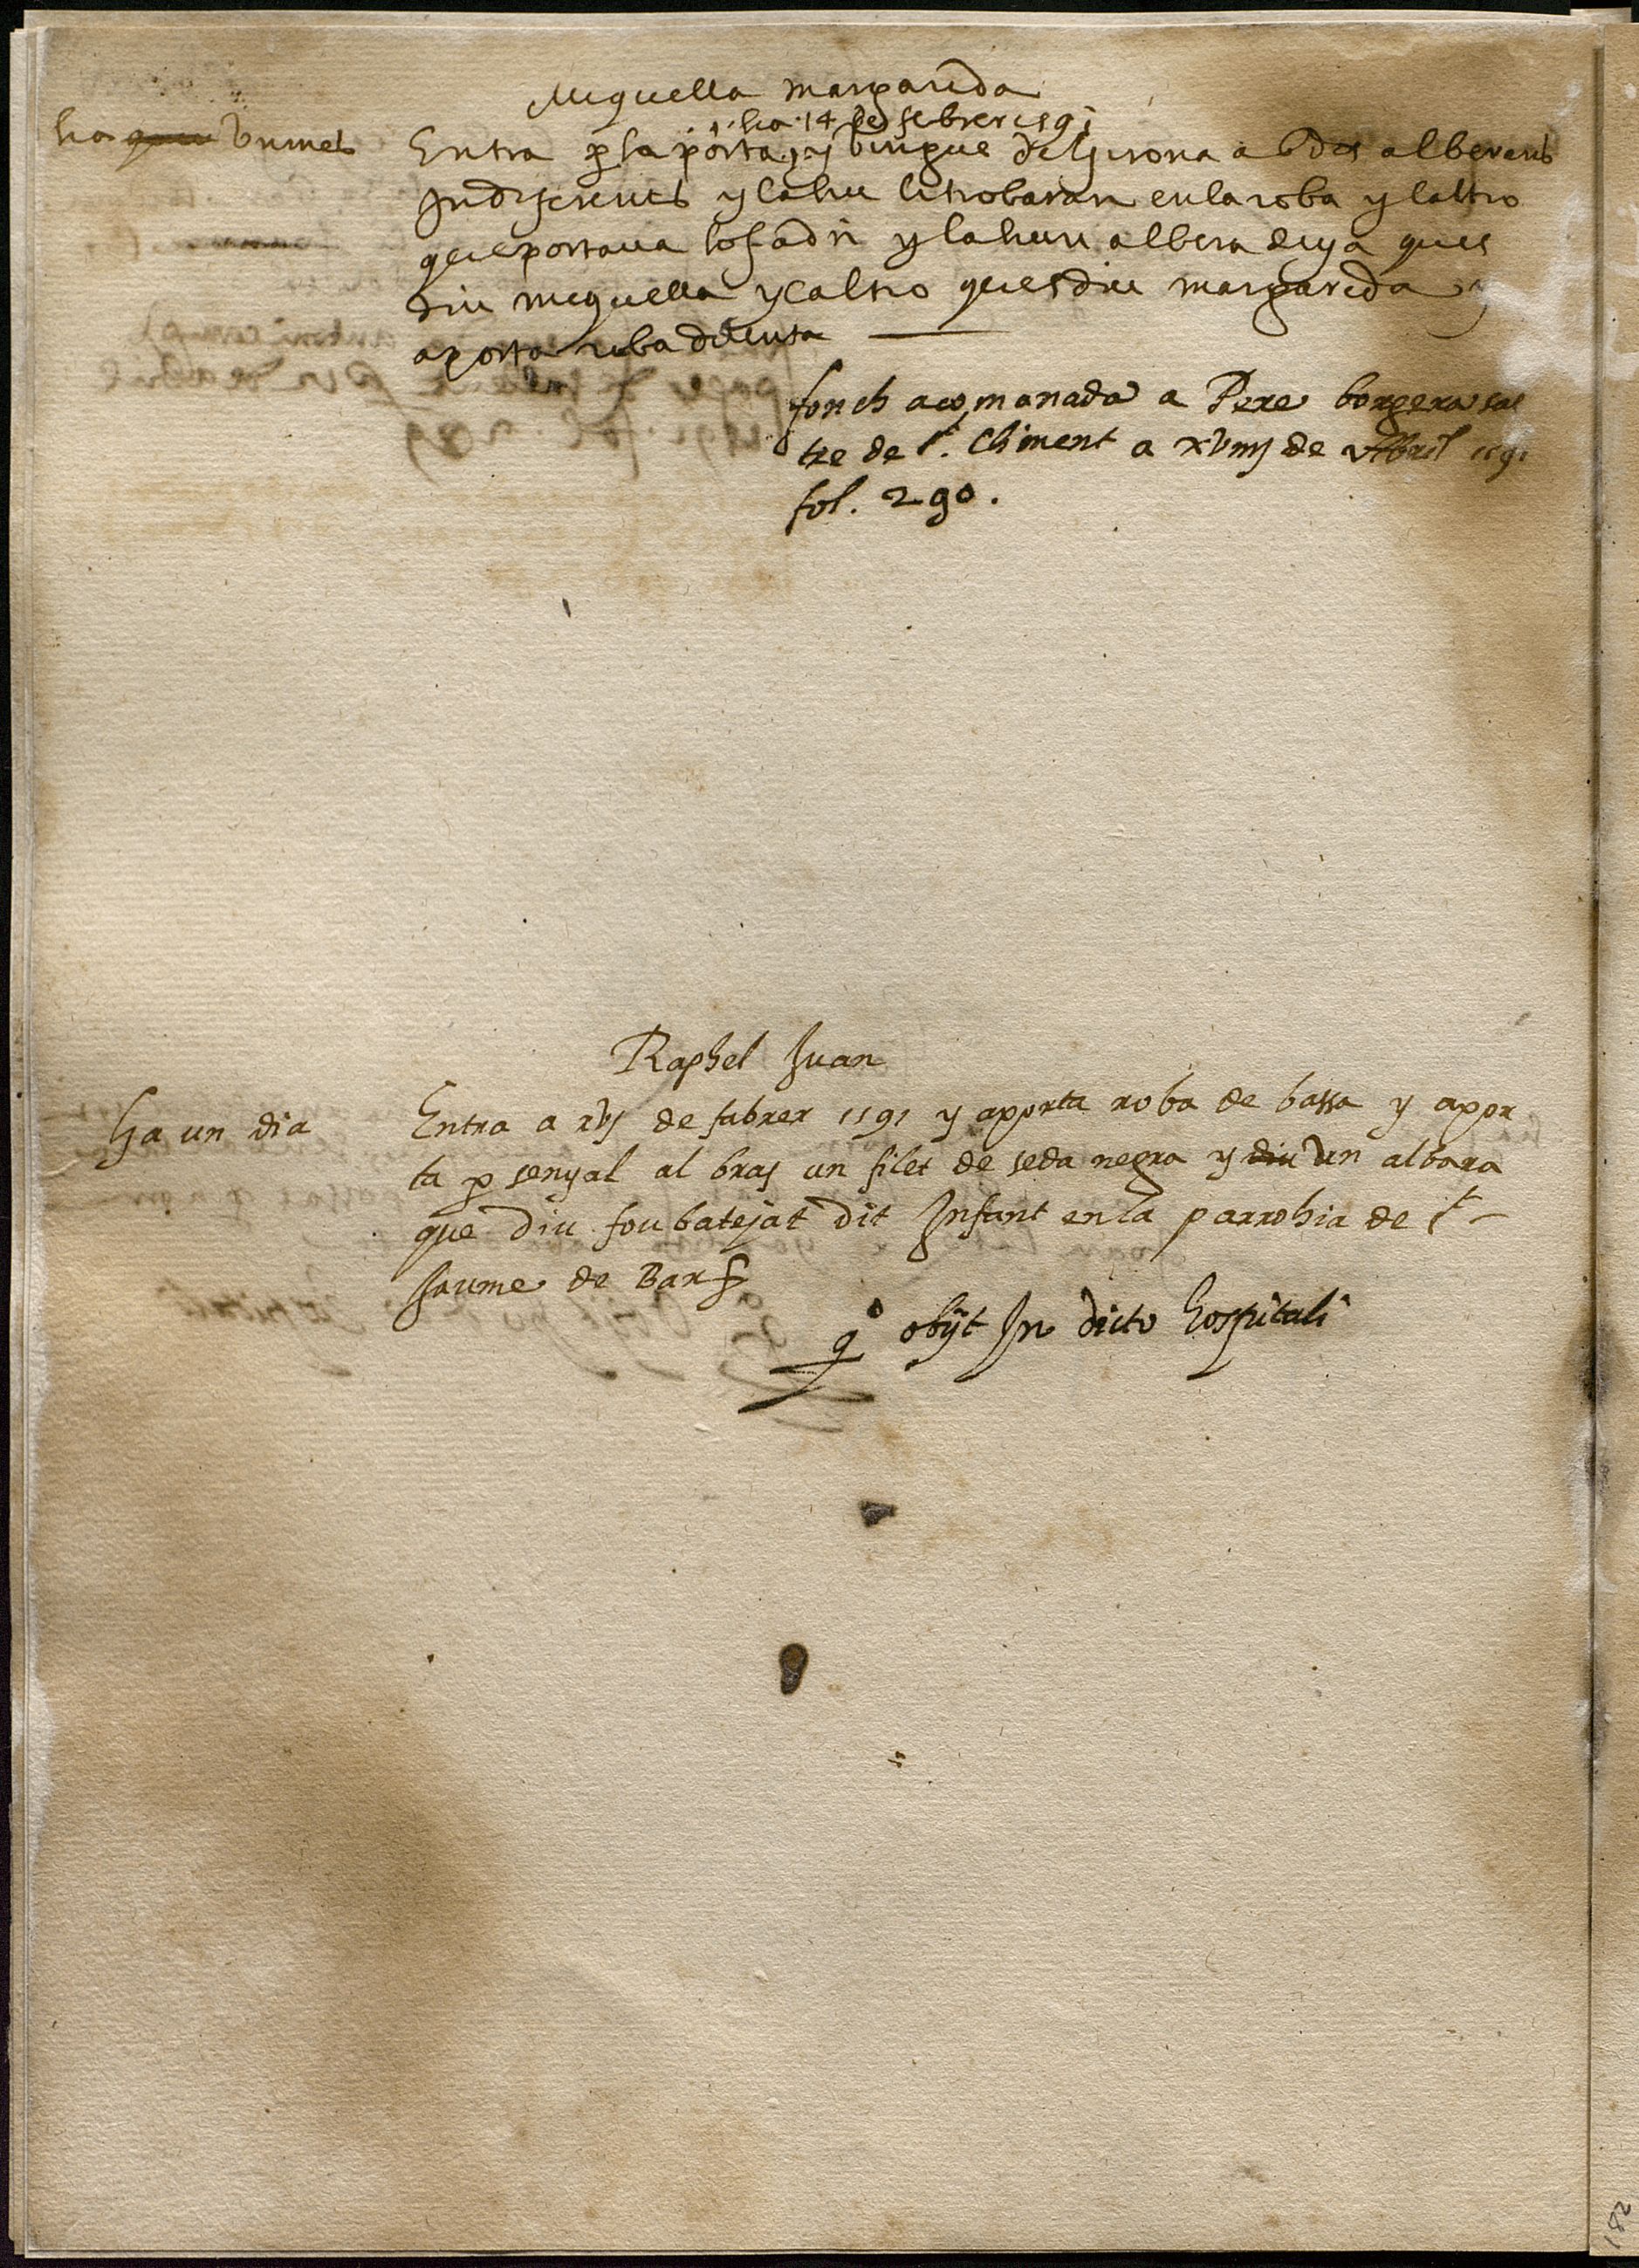 Miquella margarida
ha un mes
a 14 de febrer 1591
Entra p la porta y vingue de Gerona a dos alberans
indiferents y la hu li trobaran en la roba y laltro
que portava lo fadri y la hun albera deya ques
diu miquella y laltro ques diu margarida y
aporta roba dolenta
fonch acomanada a Pere borgera sas
tre de St. Climent a xviiij de Abril 1591
fol. 290.
Raphel Juan
Ha un dia
Entra a xvj de fabrer 1591 y aporta roba de bassa y apor
ta p senyal al bras un filet de seda negra y diu un albara
que diu fou batejat dit Infant en la parrohia de St
Jaume de Bar
obijt In dicto hospitali
182